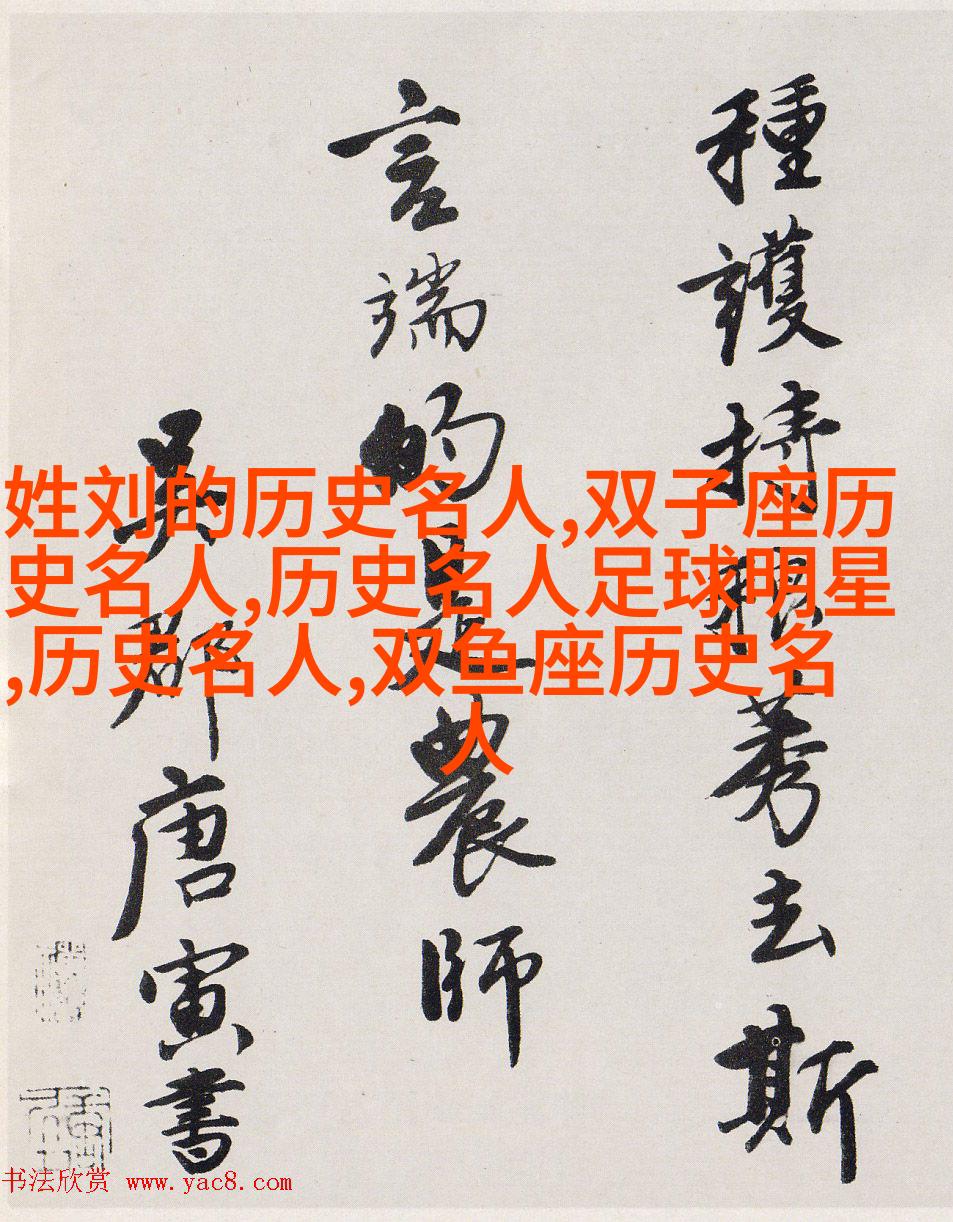 種護持稂莠去斯
言端的是農師
吳郡唐寅書
姓刘的历史名人,双子座历
史名人,历史名人足球明星
,历史名人,双鱼座历史名
人
书法欣赏 www.yac8.com